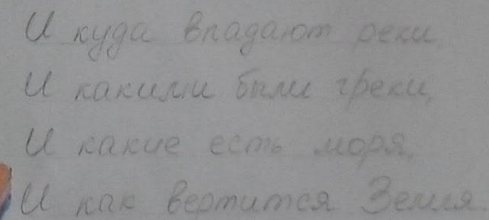 И куда впадают реки,
И какими были греки,
И какие есть моря,
И как вертится Земля.